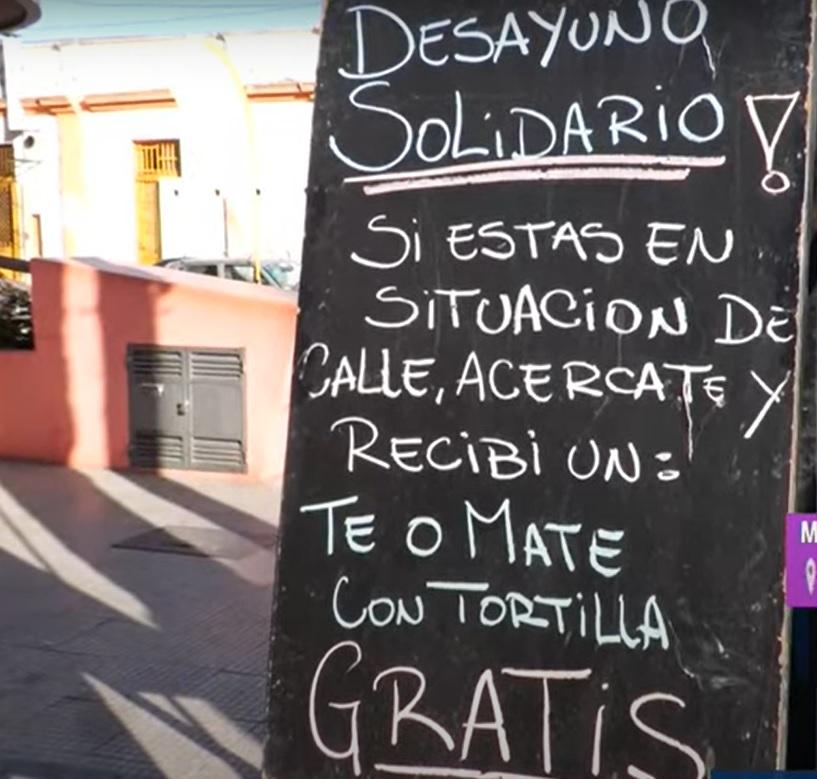 DESAYUNO
SOLiDARiO!
Si ESTAS EN
SiTUACiON DE
CALLE, ACERCATE Y
RECiBi UN:
TE O MATE
CON TORTiLLA
GRATiS
M